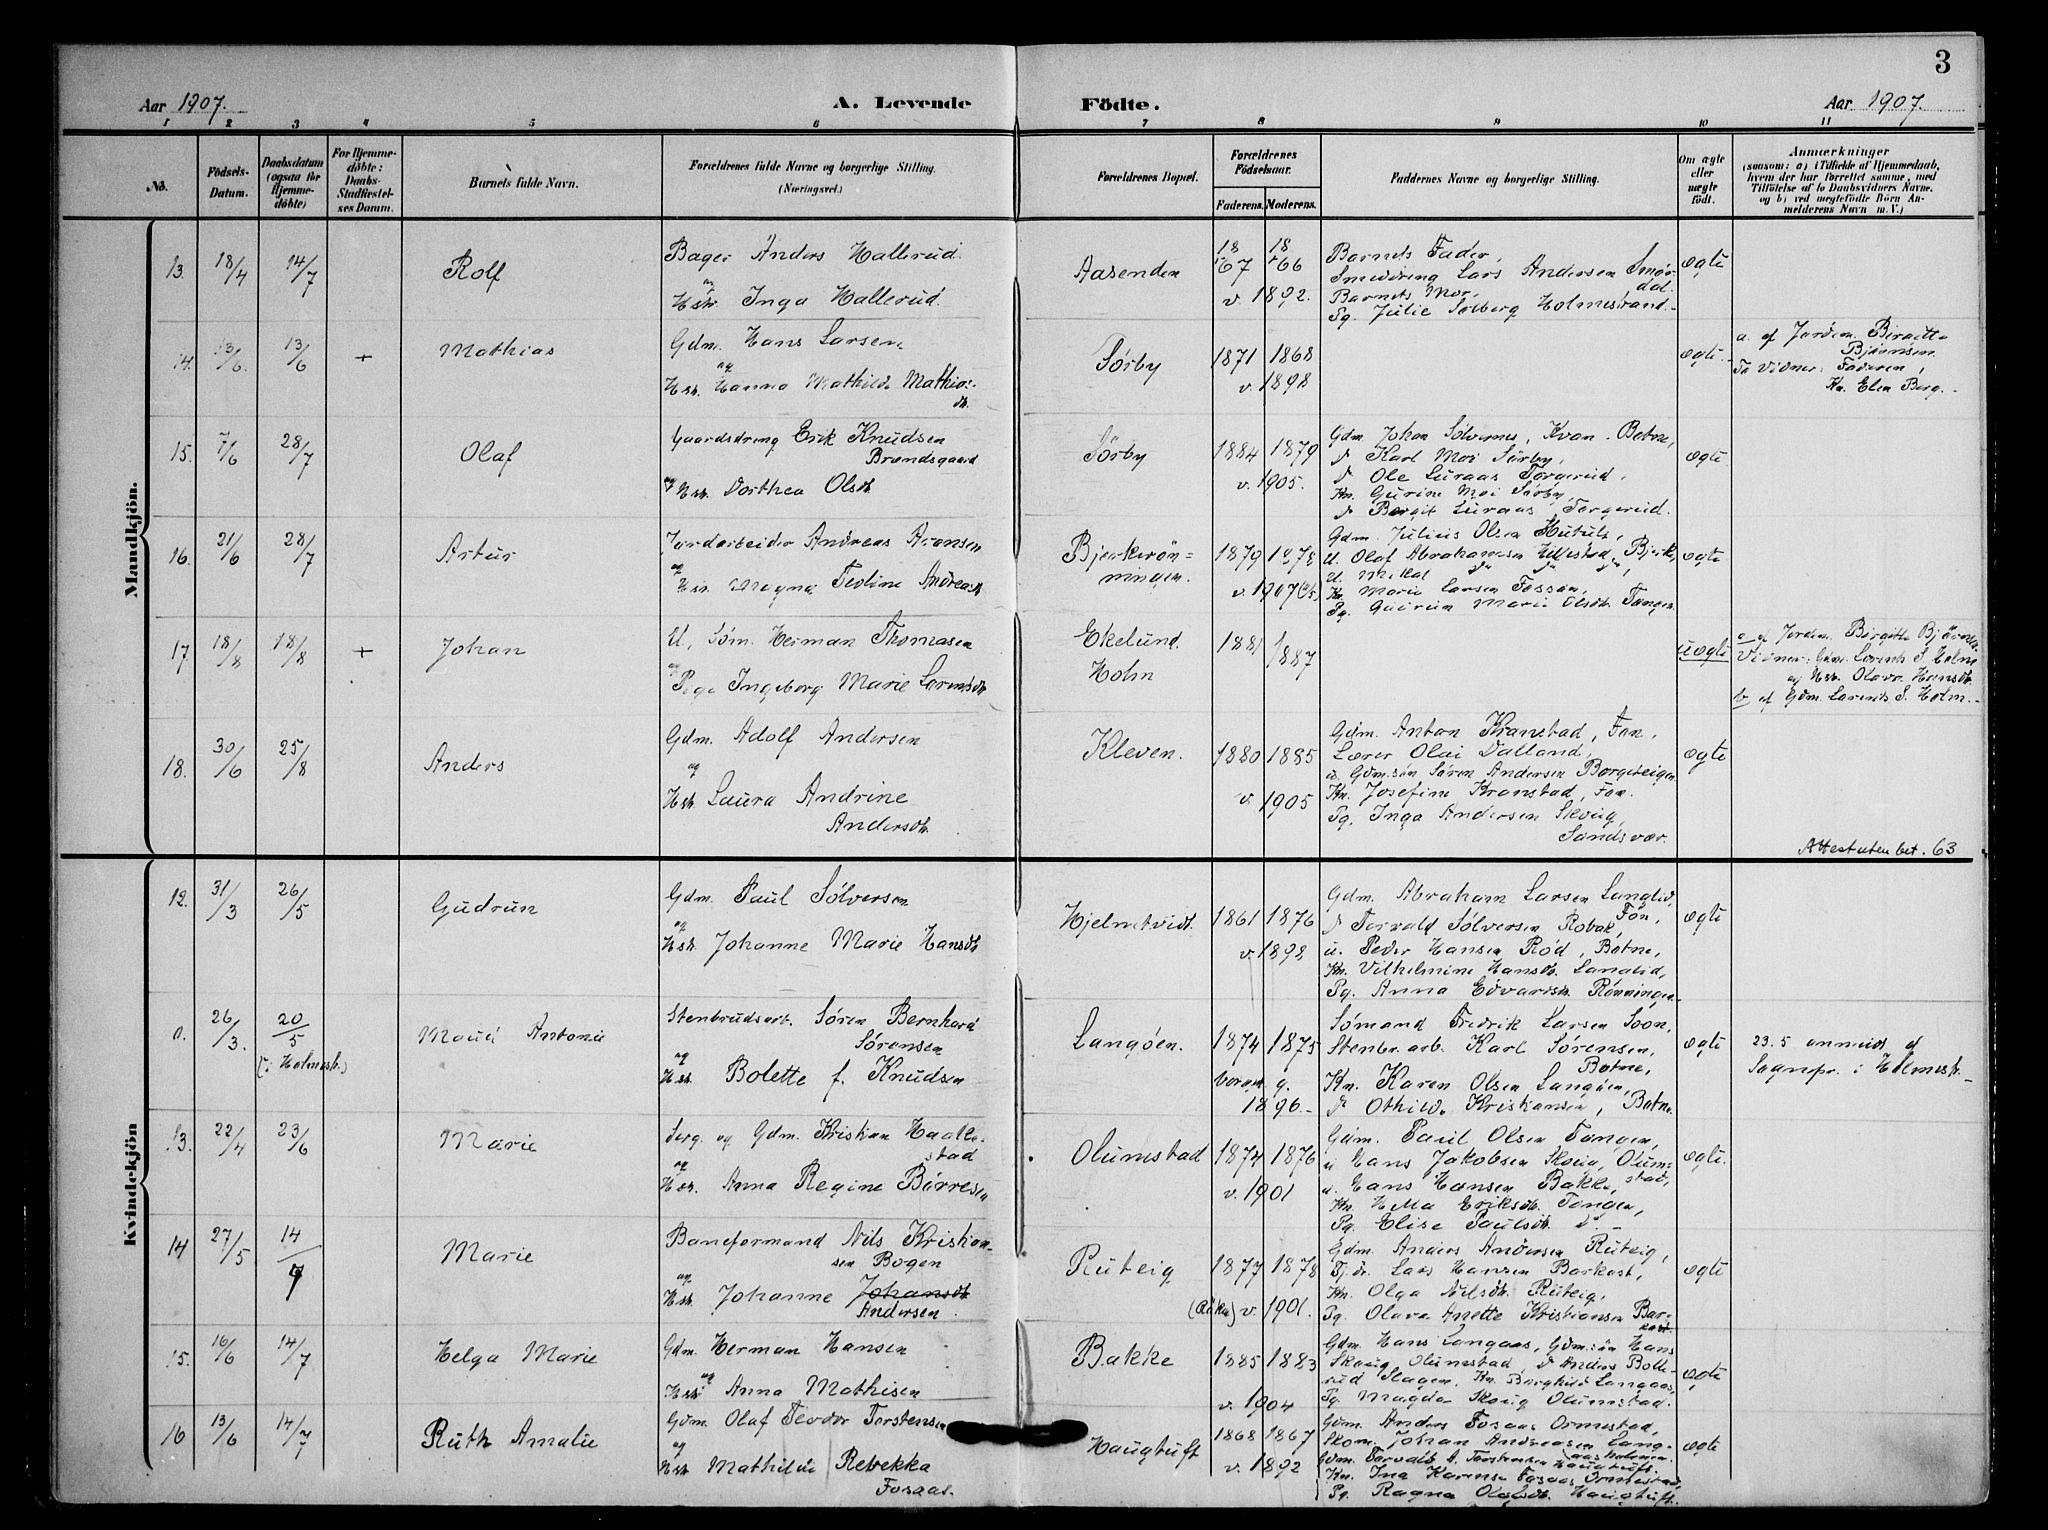 3
Aar 1907.
A. Levende
Födte.
Aar 1907.
1 2 3 4 5 6 7 8 9 10 11
No.
Födsels-Datum.
Daabsdatum (ogsaa for Hjemme-döbte)
For Hjemme-döbte: Daabs-Stadfæstelses Datum.
Barnets fulde Navn.
Forældrenes fulde Navne og borgerlige Stilling.
(Næringsvei.)
Forældrenes Bopæl.
Forældrenes Födselsaar.
Faderens. Moderens.
Faddernes Navne og borgerlige Stilling.
Om ægte eller uægte födt.
Anmærkninger
(saasom: a) i Tilfælde af Hjemmedaab,
hvem der har forrettet samme, med
Tilföielse af to Daabsvidners Navne,
og b) ved uægtefödte Börn An-
melderens Navn m. V.)
Mandkjön.
13. 18/4 14/7 Rolf
Bager Anders Hallerud
og
Hstr. Inga Hallerud.
Aasenden
18 67 18 66
v. 1892.
Barnets Fader,
Smeddreng Lars Andersen Smør-
dal.
Barnets Mor,
Pg. Julie Solberg Holmestrand.
ægte
14. 13/6. 13/6 + Mathias
Gdm. Hans Larsen
og
Hstr. Hanna Mathilde Mathias-
dtr.
Sørby
1871 1868
v. 1898
ægte.
a. af Jordm. Birgitte
Bjørnsen.
To Vidner: Faderen,
Kn. Elen Berg.
15. 7/6 28/7 Olaf
Gaardsdreng Erik Knudsen
Brændsgaard
og Hstr. Dorthea Olsdtr.
Sørby
1884 1879
v. 1905.
Gdm. Johan Sølvernes, Kvan. Botne,
do Karl Moi Sørby,
do Ole Luraas Torgerud,
Kn. Gurine Moi Sørby,
do Bergit Luraas Torgerud.
ægte
16. 21/6 28/7 Artur
Jordarbeider Andreas Aronsen
og
Hstr. Magna Teoline Andreasdtr.
Bjerkerøn-
ningen.
1879 1878
v. 1907
Gdm. Julius Olsen
U. Olaf Abrahamsen Hillestad, Bjerke,
U. Mikal do do,
Kn. Marie Larsen Fossan,
Pg. Gudrun Marie Olsdtr. Tangen
ægte
17. 18/8 18/8 + Johan
U. Søm. Herman Thomasen
og
Pige Ingeborg Marie Lorentsdtr.
Ekelund.
Holm
1881 1887
uægte
a. af Jordm. Birgitte Bjørnsen.
Vidner: Gdm. Lorents S. Holm
og Hstr. Olava Hansdtr.
b. af Gdm. Lorents S. Holm.
18. 30/6 25/8 Anders
Gdm. Adolf Andersen
og
Hstr. Laura Andrine
Andersdtr.
Kleven.
1880 1885
v. 1905
Gdm. Anton Kranstad, Fon,
Lærer Olai Dalland,
u. Gdm.søn Søren Andersen Borgeteigen
Kn. Josefine Kranstad, Fon.
Pg. Inga Andersen Skoug,
Sandsvær.
ægte
Attest uten bet. 63
Kvindekjön
12. 31/3 26/5 Gudrun
Gdm. Paul Sølversen
og
Hstr. Johanne Marie Hansdtr.
Hjelmtvedt.
1861 1876
v. 1898
Gdm. Abraham Larsen Langlid,
Fon,
do Torvald Sølversen Robak,
u. Peder Hansen Rød, Botne,
Kn. Vilhelmine Hansdtr. Langlid,
Pg. Anna Edvardsdtr. Rønningen.
ægte
0. 26/3. 20/5 (i Holmestr.) Maud Antonie
Stenbrudsarb. Søren Bernhard
Sørensen
og
Hstr. Bolette f. Knudsen
Langøen.
1874 1875
borg. g.
1896.
Sømand Fredrik Larsen Soon,
Stenbr.arb. Karl Sørensen,
Botne,
Kn. Karen Olsen Langøen,
do Othilde Kristiansen, Botne.
ægte
23.5 anmeldt af
Sognepr. i Holmestr.
13. 22/4 23/6 Marie
Serg. og Gdm. Kristian Haalle-
stad
og
Hstr. Anna Regine Børresen
Olumstad
1874 1876
v. 1901
Gdm. Paul Olsen Tangen,
u Hans Jakobsen Skoug, Olum-
stad,
u. Hans Hansen Bakke,
Kn. Helma Eriksdtr. Tangen,
Pg. Elise Paulsdtr. do
ægte.
14 27/5 14/7 Marie
Baneformand Nils Kristian-
sen Bogen
og
Hstr. Johanne Johansdtr.
Andersen.
Ruteig
1877 1878
(Røken) v. 1901.
Gdm. Anders Andersen Ruteig,
Tj.dr. Lars Hansen Barkost,
Kn. Olga Nilsdtr. Ruteig,
Pg. Olava Anette Kristiansen Bar-
kost.
ægte
15. 16/6 14/7 Helga Marie
Gdm. Herman Hansen
og
Hstr. Anna Mathisen
Bakke
1885 1883
v. 1904
Gdm. Hans Langaas, Gdm.søn Hans
Skoug Olumstad, do Anders Bolle-
rud Slagen, Kn. Borghild Langaas,
Pg. Magda Skoug Olumstad.
ægte
16 13/6 14/7 Ruth Amalie
Gdm. Olaf Teodor Torstensen
og
Hstr. Mathilde Rebekka
Fosaas.
Haugtuft
1868 1867
v. 1892
Gdm. Anders Fosaas Ormestad,
Skom. Johan Andreasen Lang-
aas Holmen.
Gdm. Torvald A. Torstensen Haugtuft.
Kn. Ina Karense Fosaas Ormestad,
Pg. Ragna Olafsdtr. Haugtuft.
ægte